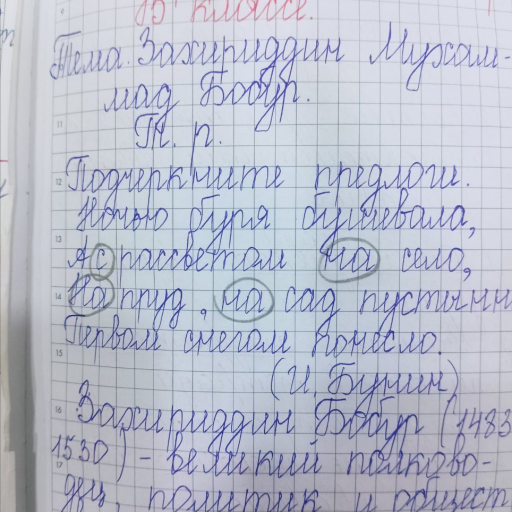 15 классе.
Тема. Захириддин Мухам-
мад Бобур.
Т. р.
Подчеркните предлоги.
Ночью буря бушевала,
А с рассветом на село,
На пруд, на сад пустынн
Первом снегом понесло.
(И. Бунин)
Захириддин Бобур (1483
1530) - великий полково-
дец, политик и общест